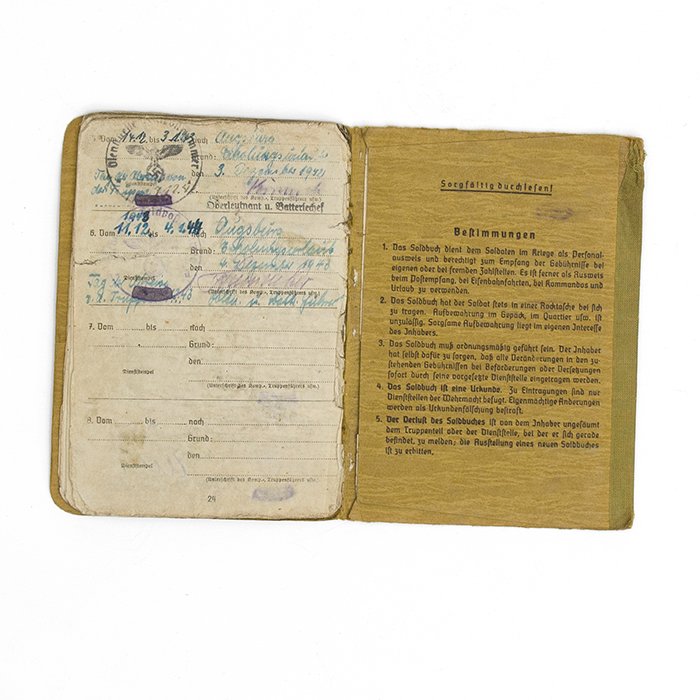 Dom bis nach Augsburg
Grund: Erholungsurlaub
3. Dezember 1942
(Unterschrift des Komp.-, Truppenführers usw.)
Oberleutnant u. Batteriechef
1943
6. Dom 11.12. bis 4.1.44 nach Augsburg
Grund: Erholungsurlaub
1943
Dienststempel
7. Dom bis nach
Grund:
den
Dienststempel
(Unterschrift des Komp.-, Truppenführers usw.)
8. Dom bis nach
Grund:
den
Dienststempel
(Unterschrift des Komp.-, Truppenführers usw.)
24
Sorgfältig durchlesen!
Bestimmungen
1. Das Soldbuch dient dem Soldaten im Kriege als Personal-
ausweis und berechtigt zum Empfang der Gebührnisse bei
eigenen oder bei fremden Zahlstellen. Es ist ferner als Ausweis
beim Postempfang, bei Eisenbahnfahrten, bei Kommandos und
Urlaub zu verwenden.
2. Das Soldbuch hat der Soldat stets in einer Rocktasche bei sich
zu tragen. Aufbewahrung im Gepäck, im Quartier usw. ist
unzulässig. Sorgsame Aufbewahrung liegt im eigenen Interesse
des Inhabers.
3. Das Soldbuch muß ordnungsmäßig geführt sein. Der Inhaber
hat selbst dafür zu sorgen, daß alle Veränderungen in den zu-
stehenden Gebührnissen bei Beförderungen oder Versetzungen
sofort durch seine vorgesetzte Dienststelle eingetragen werden.
4. Das Soldbuch ist eine Urkunde. Zu Eintragungen sind nur
Dienststellen der Wehrmacht befugt. Eigenmächtige Änderungen
werden als Urkundenfälschung bestraft.
5. Der Verlust des Soldbuches ist von dem Inhaber ungesäumt
dem Truppenteil oder der Dienststelle, bei der er sich gerade
befindet, zu melden; die Ausstellung eines neuen Soldbuches
ist zu erbitten.